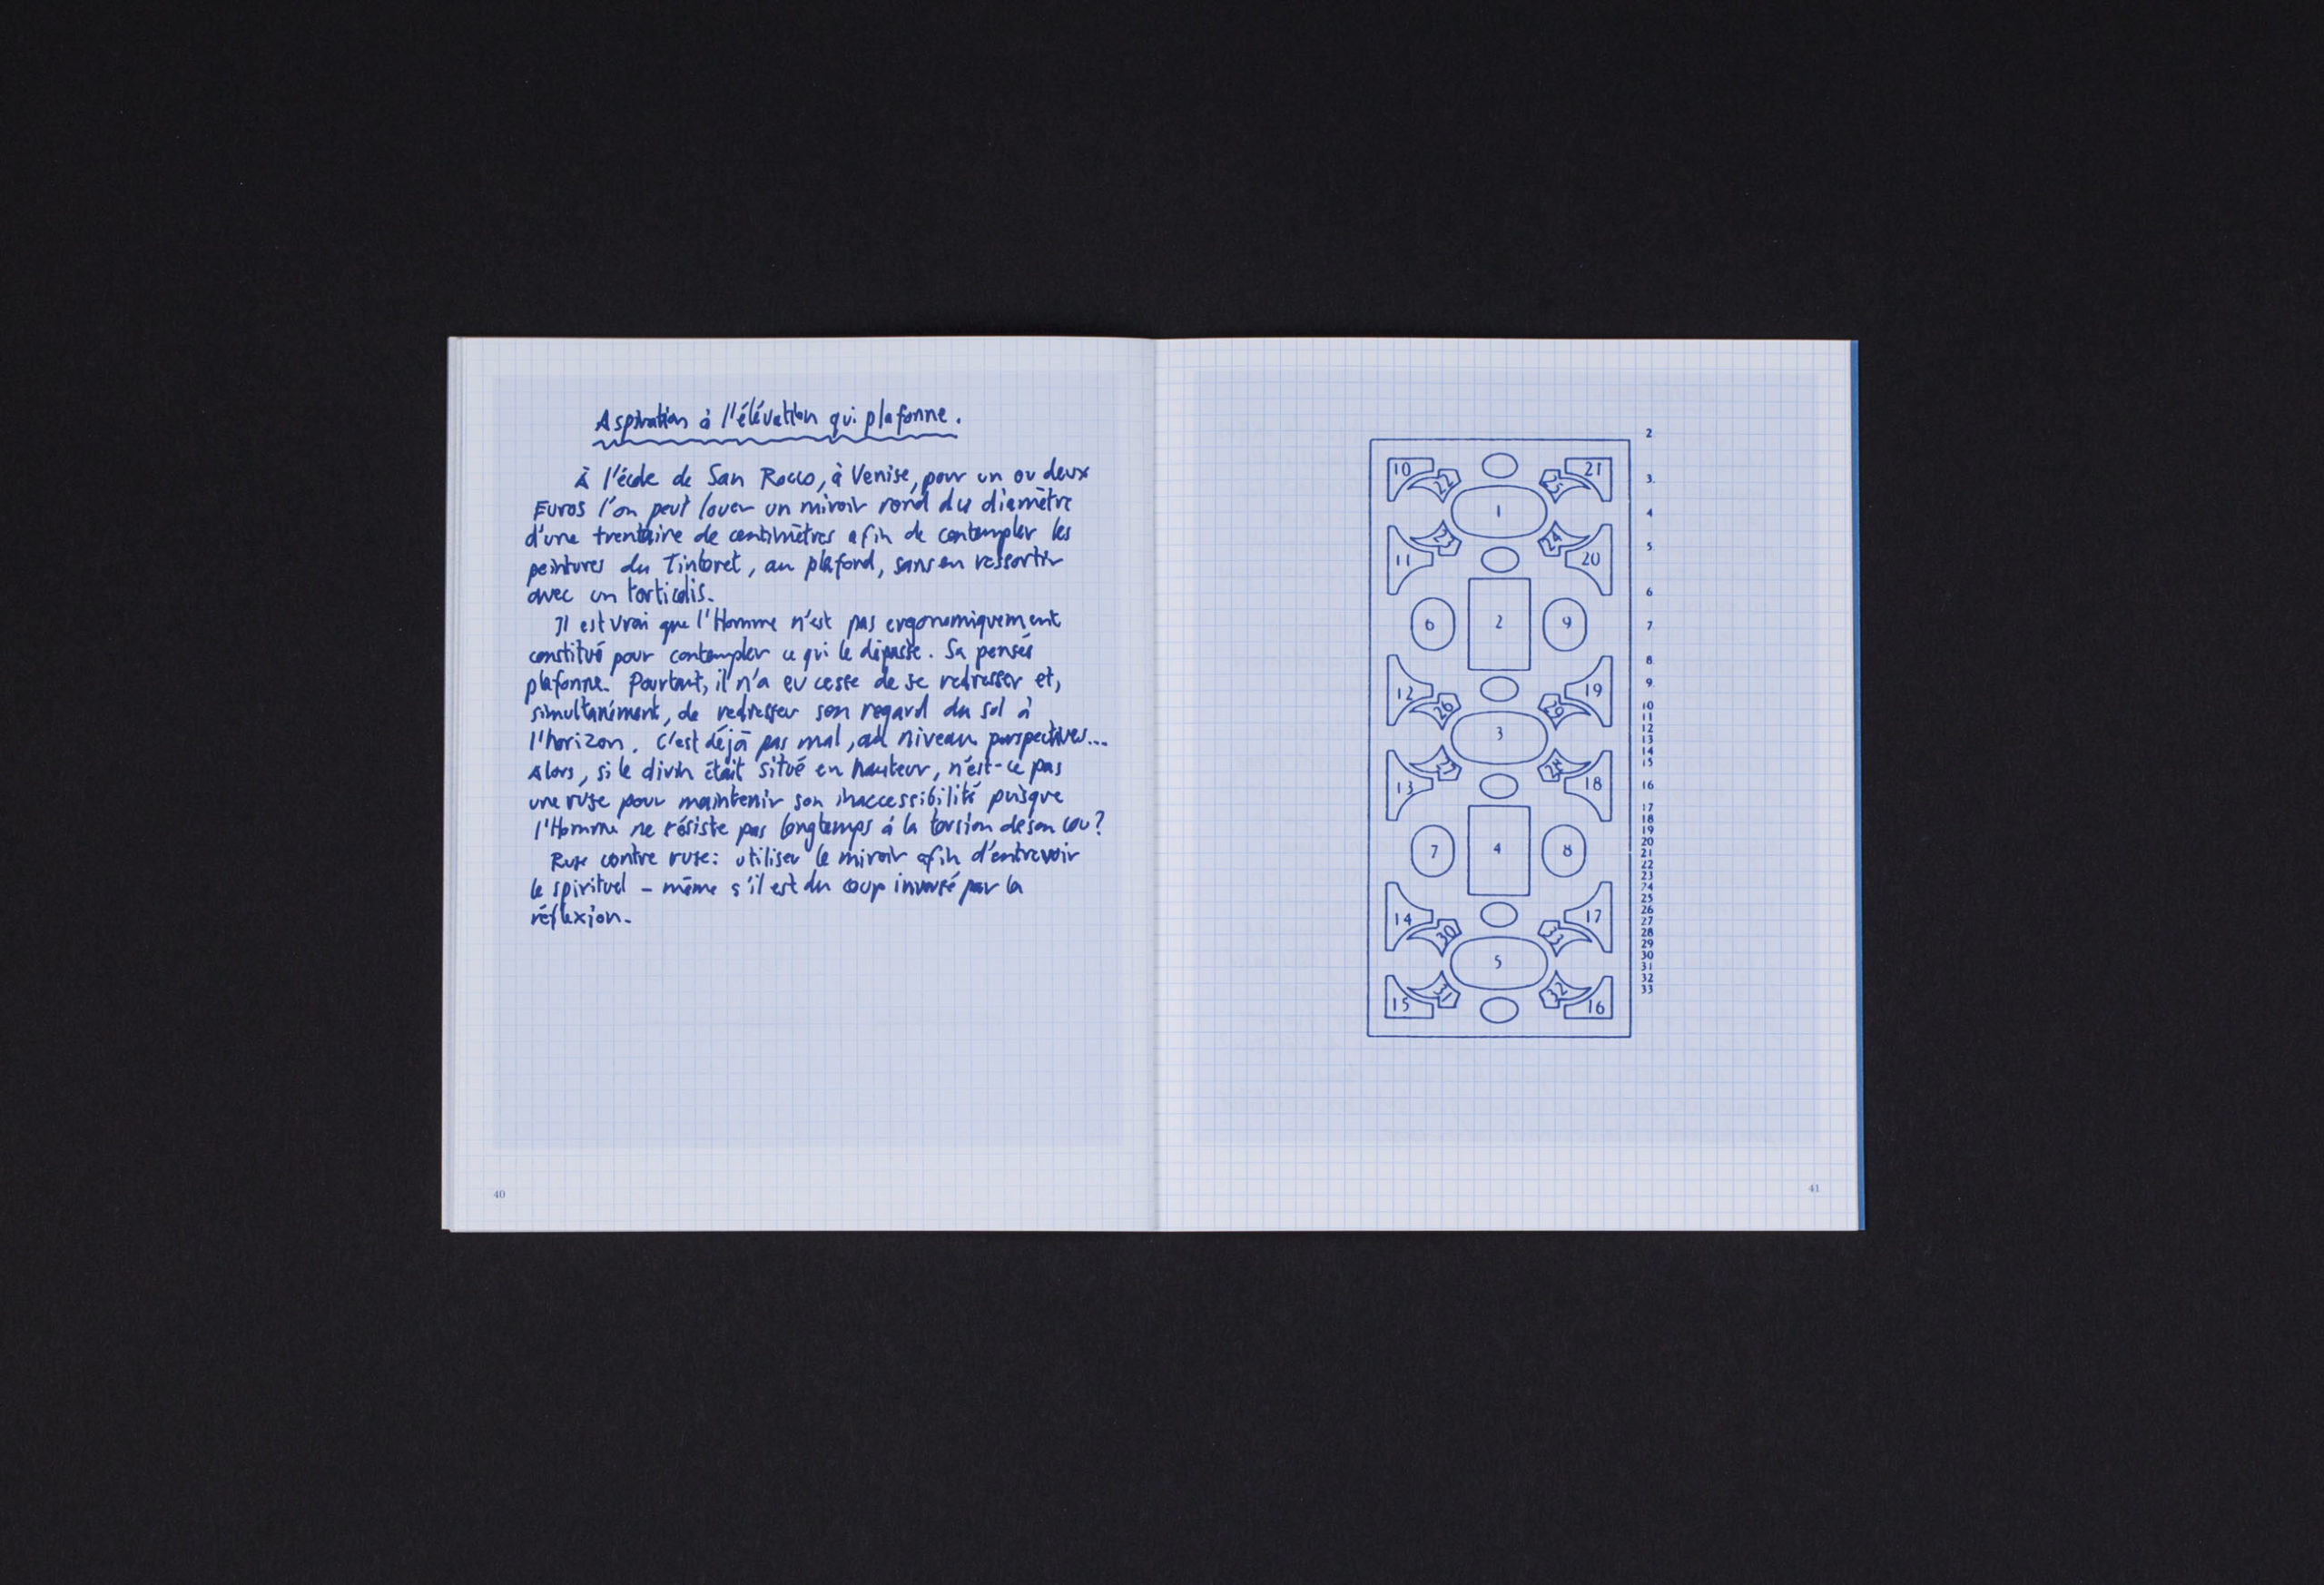 Aspiration à l'élévation qui plafonne.
À l'école de San Rocco, à Venise, pour un ou deux
Euros l'on peut louer un miroir rond du diamètre
d'une trentaine de centimètres afin de contempler les
peintures du Tintoret, au plafond, sans en ressortir
avec un torticolis.
Il est vrai que l'Homme n'est pas ergonomiquement
constitué pour contempler ce qui le dépasse. Sa pensée
plafonne. Pourtant, il n'a eu cesse de se redresser et,
simultanément, de redresser son regard du sol à
l'horizon. C'est déjà pas mal, au niveau perspectives...
Alors, si le divin était situé en hauteur, n'est-ce pas
une ruse pour maintenir son inaccessibilité puisque
l'Homme ne résiste pas longtemps à la torsion de son cou?
Ruse contre ruse: utiliser le miroir afin d'entrevoir
le spirituel – même s'il est du coup inversé par la
réflexion.
40
10 22 25 21
1
11 23 24 20
6 2 9
12 26 29 19
3
13 27 28 18
7 4 8
14 30 33 17
5
15 31 32 16
2
3.
4
5
6
7
8
9
10
11
12
13
14
15
16
17
18
19
20
21
22
23
24
25
26
27
28
29
30
31
32
33
41